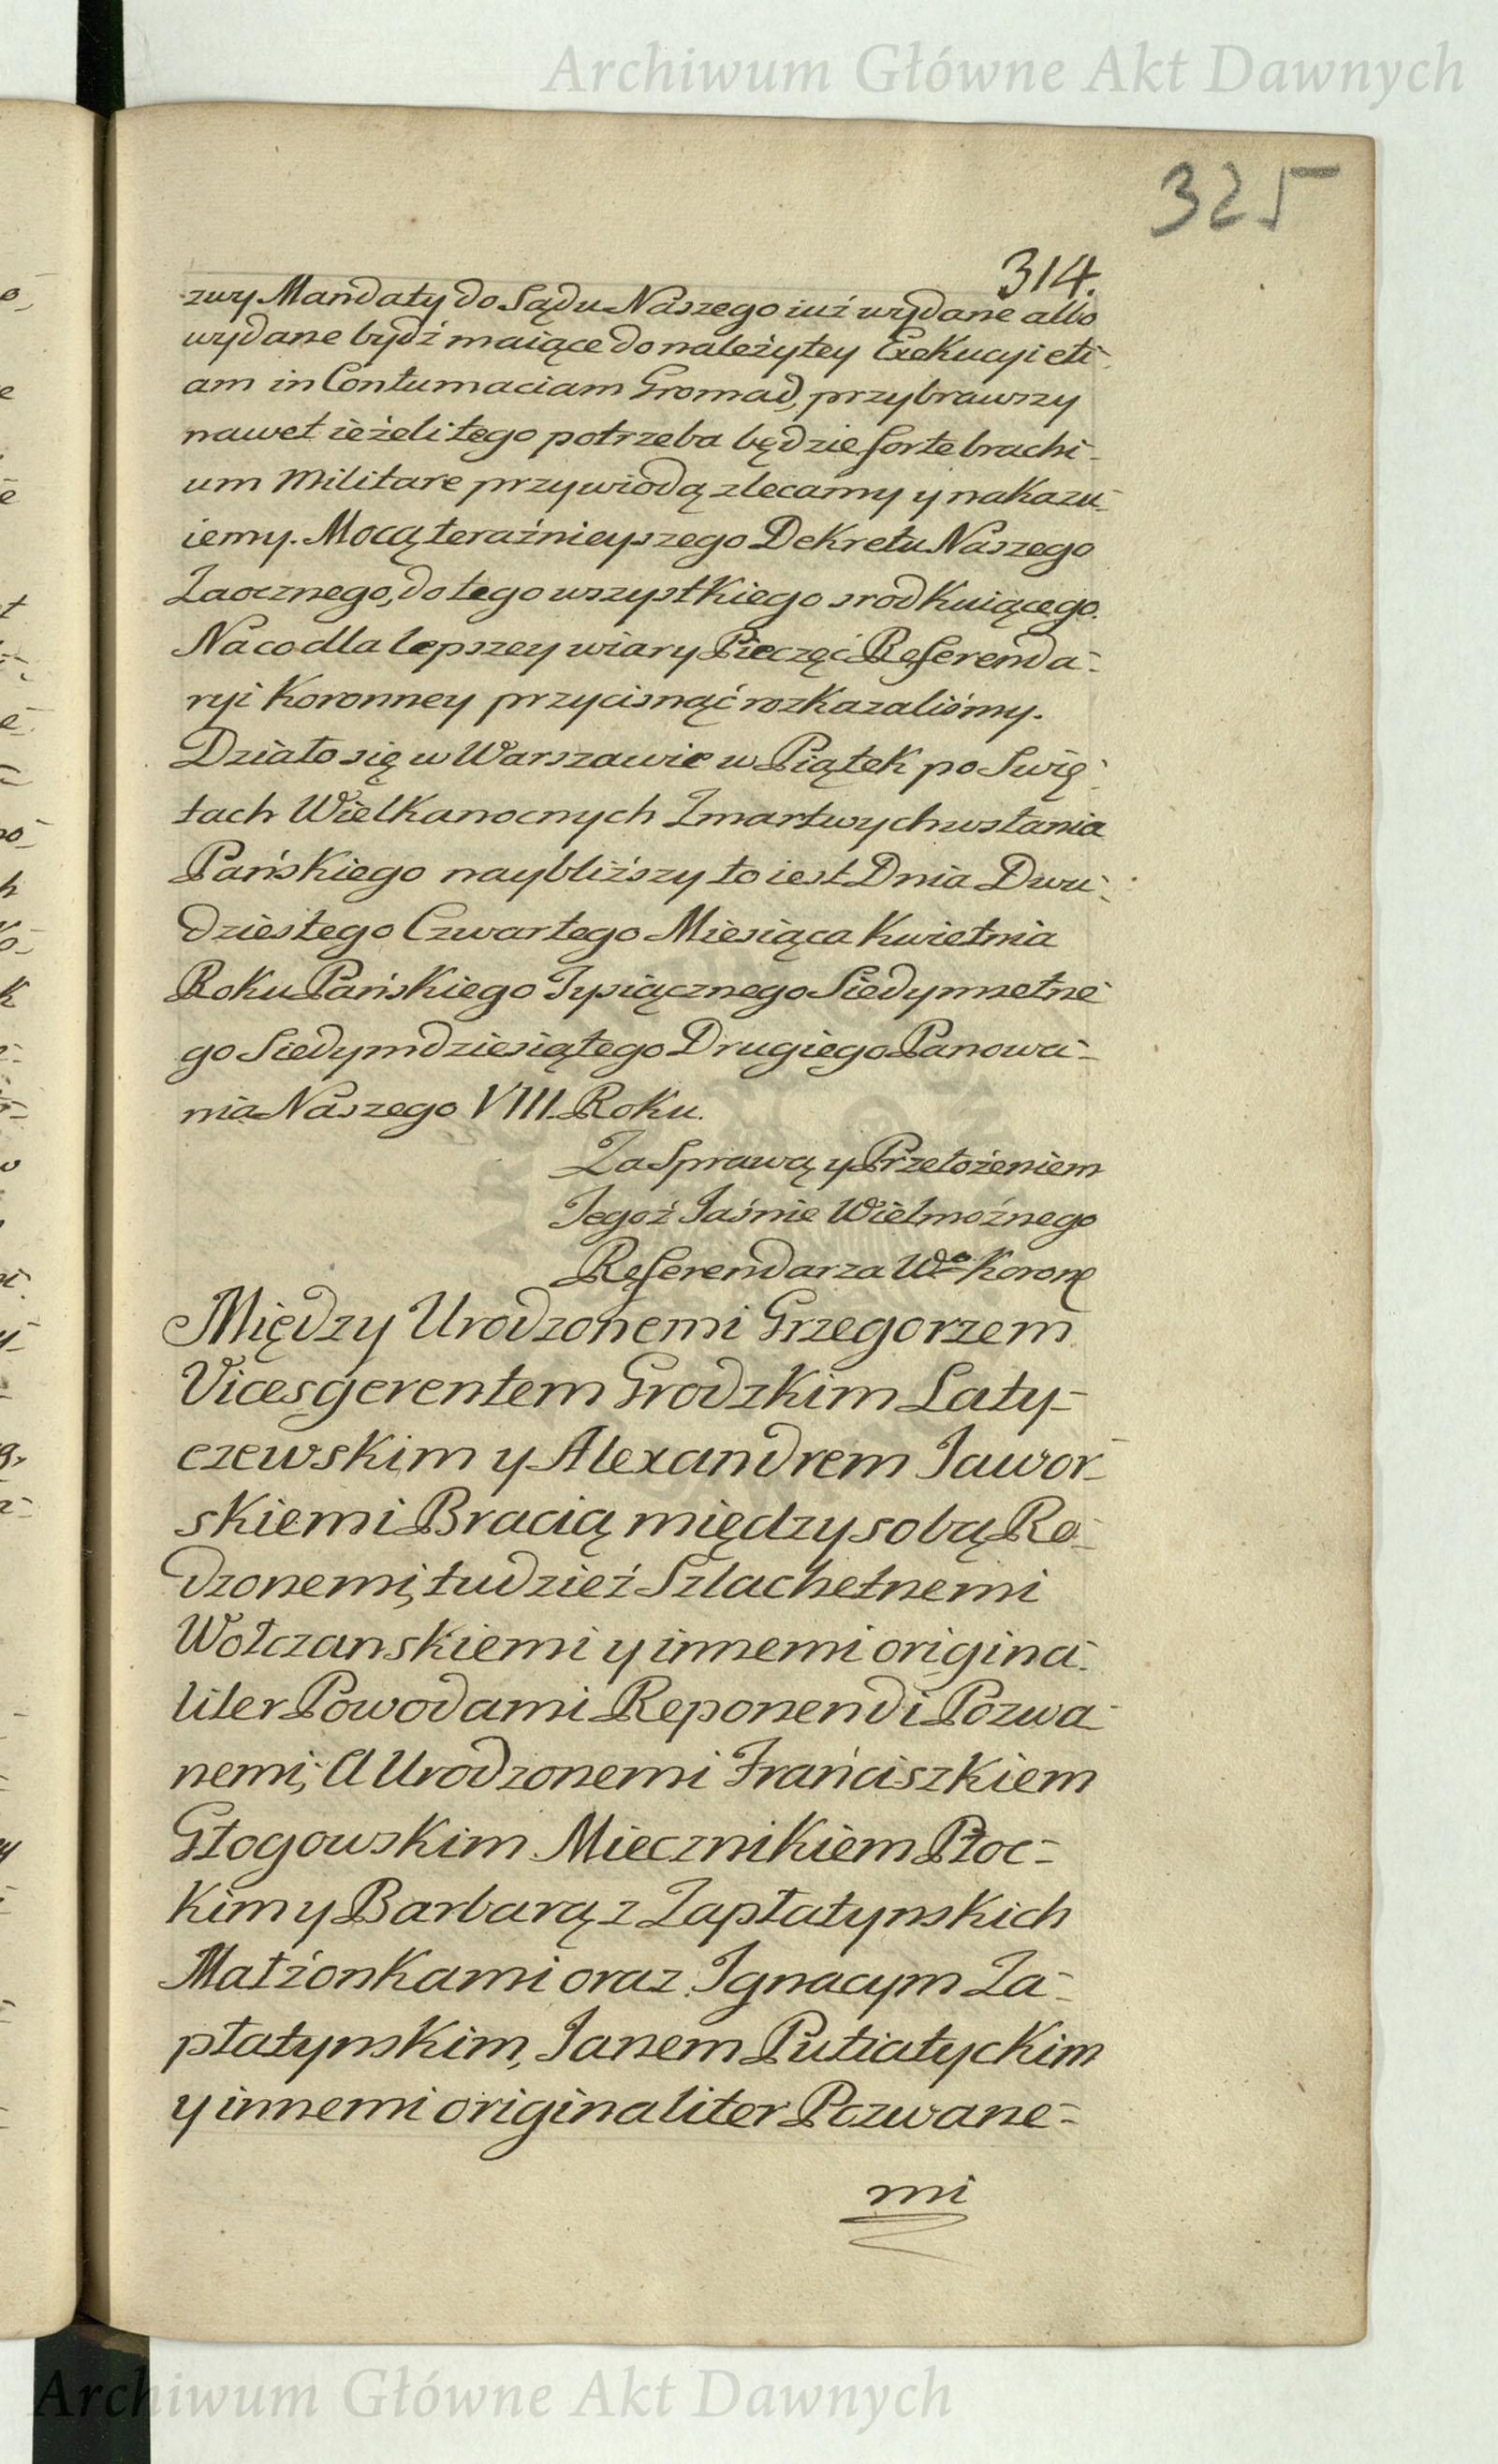 Archiwum Główne Akt Dawnych
325
314.
zwy Mandaty do Sądu Naszego iuż wydane albo
wydane bydź maiące do należytey Exekucyi eti-
am in Contumaciam Gromad, przybrawszy
nawet ieżeli tego potrzeba będzie forte brachi-
um Militare przywiodą zlecamy y nakazu-
iemy. Mocą teraźnieyszego Dekretu Naszego
Zaocznego, do tego wszystkiego srodkuiącego.
Na co dla lepszey wiary Pieczęć Referenda-
ryi Koronney przycisnąć rozkazaliśmy.
Działo się w Warszawie w Piątek po Swię-
tach Wielkanocnych Zmartwychwstania
Pańskiego naybliższy to iest Dnia Dwu-
dziestego Czwartego Miesiąca Kwietnia
Roku Pańskiego Tysiącznego Siedymsetne-
go Siedymdziesiątego Drugiego Panowa-
nia Naszego VIII Roku.
Za Sprawą y Przełożeniem
Tegoż Jaśnie Wielmożnego
Referendarza Wo Koronę
Między Urodzonemi Grzegorzem
Vicesgerentem Grodzkim Laty-
czewskim y Alexandrem Jawor-
skiemi Bracią między sobą Ro-
dzonemi, tudzież Szlachetnemi
Wołczanskiemi y innemi origina-
liter Powodami Reponendi Pozwa-
nemi; A Urodzonemi Franciszkiem
Głogowskim Miecznikiem Płoc-
kim y Barbarą z Zapłatynskich
Małżonkami oraz Ignacym Za-
płatynskim, Janem Putiatyckim
y innemi originaliter Pozwane-
mi
Archiwum Główne Akt Dawnych